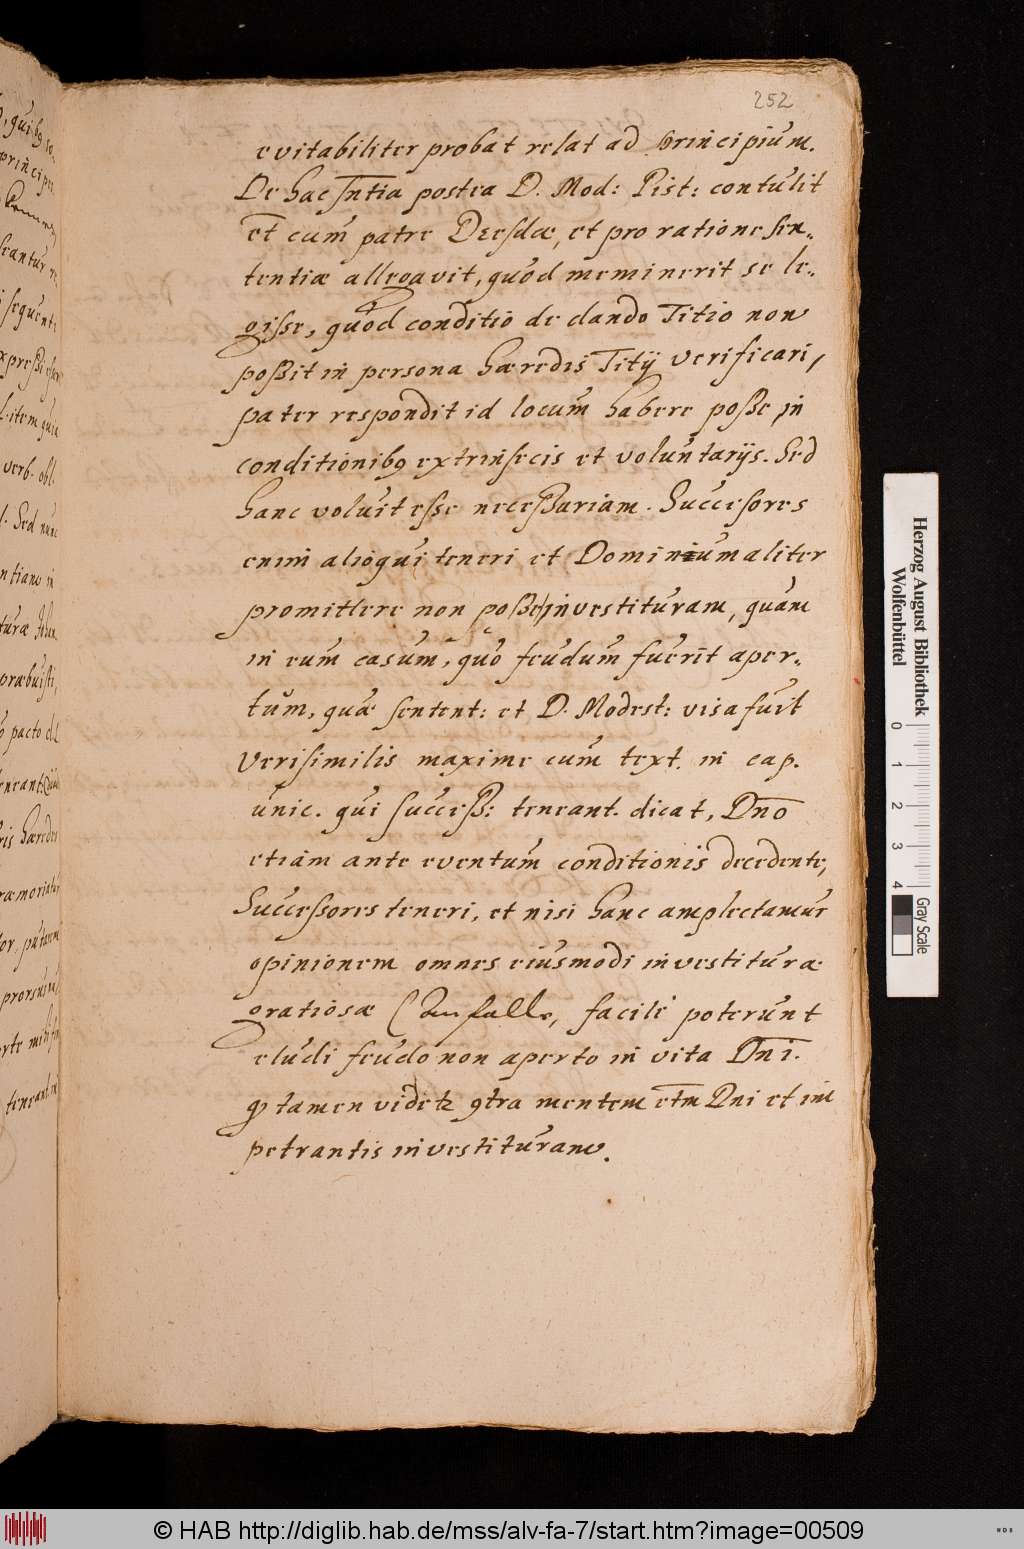 252
evitabiliter probat relat ad principium.
De hac sntia postea D. Mod: Pist: contulit
et cum patre Deesdæ, et pro ratione sen-
tentiæ allegavit, quod meminerit se le-
gisse, quod conditio de dando Titio non
poßit in persona hæredis Titij verificari,
pater respondit id locum habere poße, in
conditionibq extrinsecis et voluntarijs. Sed
hanc voluit eße neceßariam. Successores
enim alioqui teneri et Dominium aliter
promittere non poße investituram, quam
in eum casum, quo feudum fuerit aper-
tum, quæ sentent: et D. Modest: visa fuit
Verisimilis maxime cum text. in cap.
unic. qui succeß: teneant. dicat, Dno
etiam ante eventum conditionis decedente,
Successores teneri, et nisi hanc amplectamur
opinionem omnes eiusmodi investituræ
gratiosæ (Anfälle, facile poterunt
eludi feudo non aperto in vita Dni.
qp tamen videtz 9tra mentem etm Dni et im
petrantis investituram.
Herzog August Bibliothek
Wolfenbüttel
0 1 2 3 4
Gray Scale
© HAB http://diglib.hab.de/mss/alv-fa-7/start.htm?image=00509